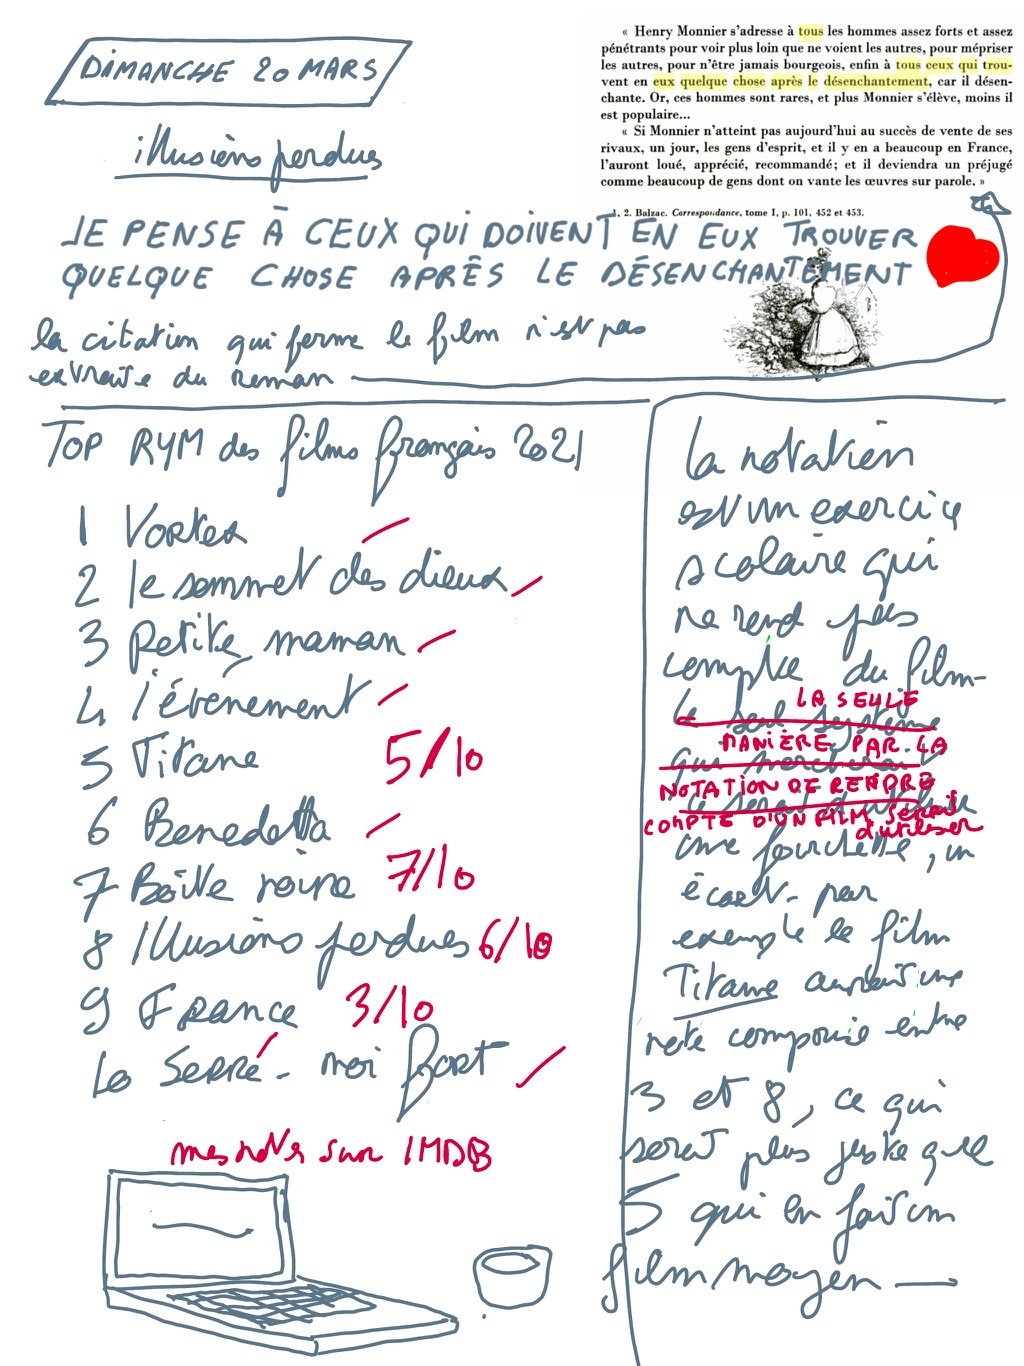 DIMANCHE 20 MARS
illusions perdues
« Henry Monnier s'adresse à tous les hommes assez forts et assez
pénétrants pour voir plus loin que ne voient les autres, pour mépriser
les autres, pour n'être jamais bourgeois, enfin à tous ceux qui trou-
vent en eux quelque chose après le désenchantement, car il désen-
chante. Or, ces hommes sont rares, et plus Monnier s'élève, moins il
est populaire...
« Si Monnier n'atteint pas aujourd'hui au succès de vente de ses
rivaux, un jour, les gens d'esprit, et il y en a beaucoup en France,
l'auront loué, apprécié, recommandé; et il deviendra un préjugé
comme beaucoup de gens dont on vante les œuvres sur parole. »
1, 2. Balzac. Correspondance, tome I, p. 101, 452 et 453.
JE PENSE À CEUX QUI DOIVENT EN EUX TROUVER
QUELQUE CHOSE APRÈS LE DÉSENCHANTEMENT
la citation qui ferme le film n'est pas
extraite du roman
TOP RYM des films français 2021
1 Vortex
2 le sommet des dieux
3 Petite maman
4 l'événement
5 Titane 5/10
6 Benedetta
7 Boîte noire 7/10
8 Illusions perdues 6/10
9 France 3/10
10 Serre-moi fort
mes notes sur IMDB
la notation
est un exercice
scolaire qui
ne rend pas
compte du film-
le seul système
LA SEULE
MANIÈRE PAR LA
NOTATION DE RENDRE
COMPTE D'UN FILM SERAIT
d'utiliser
une fourchette, un
écart - par
exemple le film
Titane aurait une
note comprise entre
3 et 8, ce qui
serait plus juste que
5 qui en fait un
film moyen —